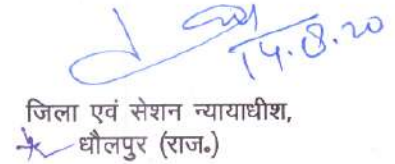 14.8.20
जिला एवं सेशन न्यायाधीश,
धौलपुर (राज०)